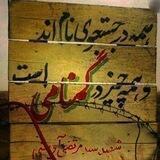 همه در جستجوی نام اند
و همه چیز در گمنامی است
شهید سید مرتضی آوینی